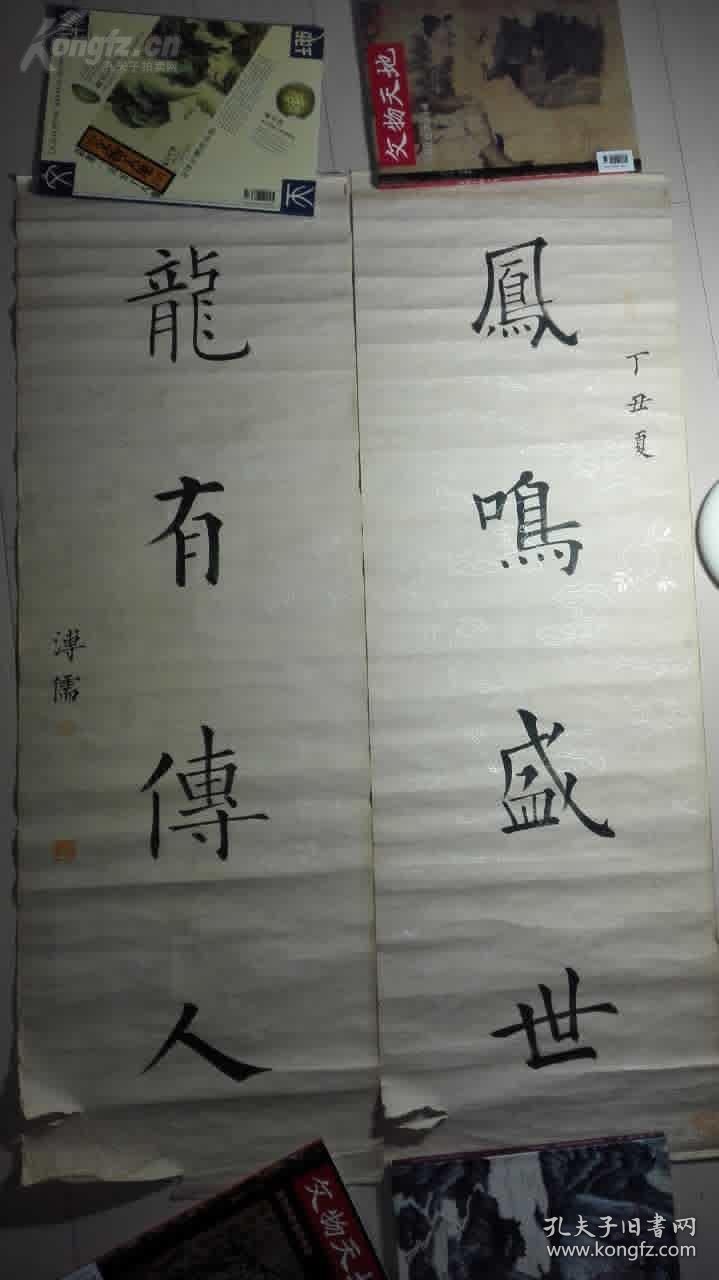 Kongfz.cn
孔夫子拍卖网
地
文
天
文物天地
鳳鳴盛世
丁丑夏
龍有傳人
溥儒
文物天地
孔夫子旧书网
www.kongfz.com